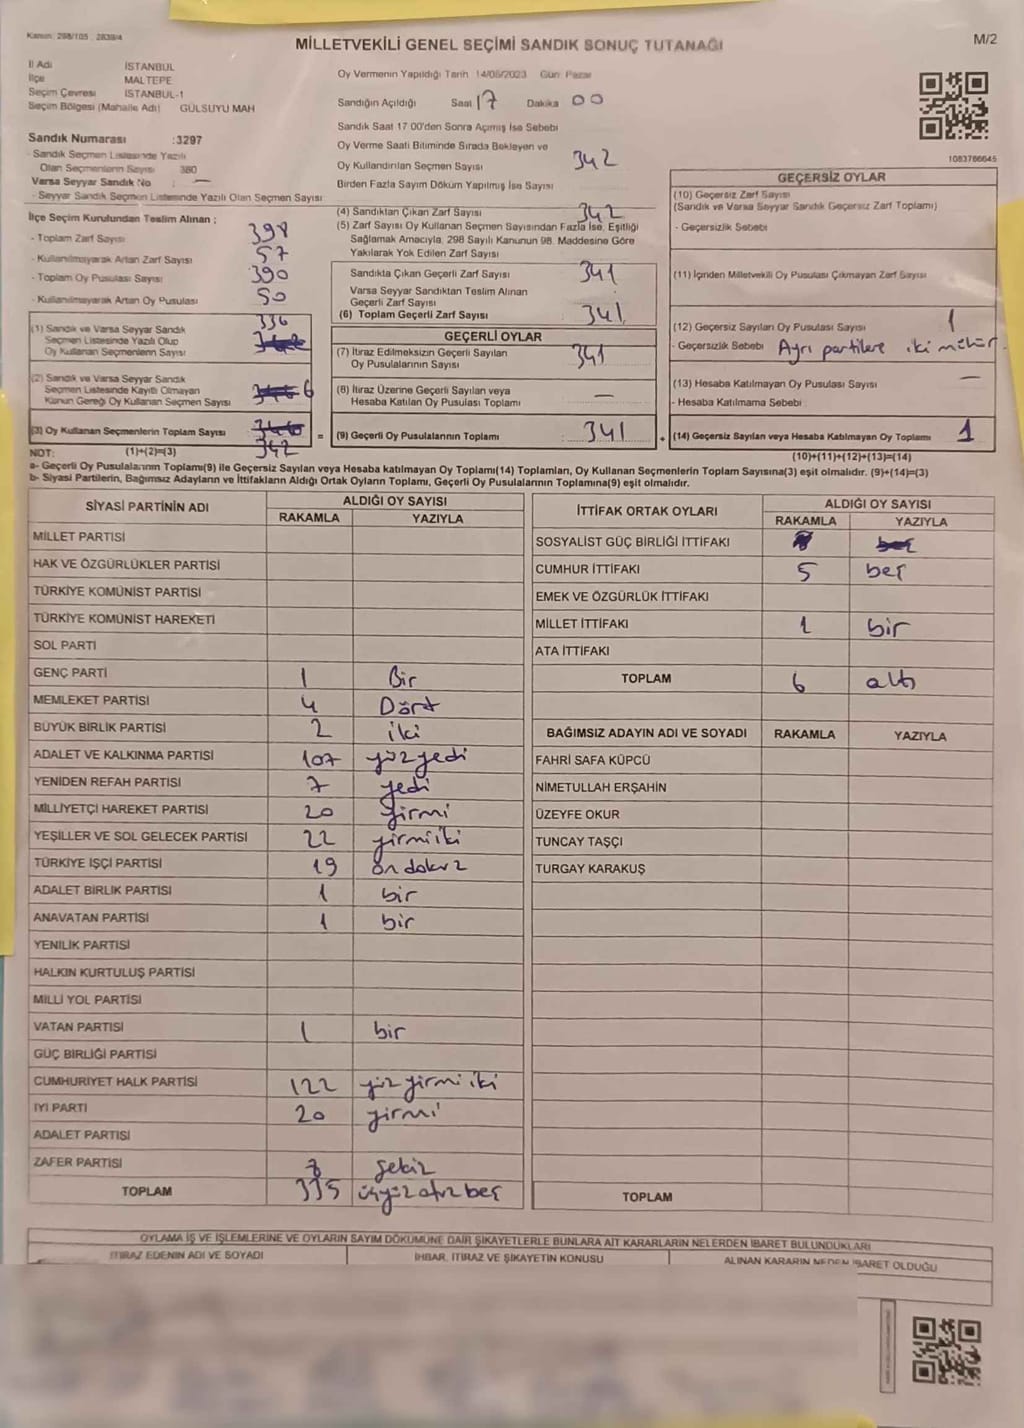 Kanun: 298/105 ; 2839/4
MİLLETVEKİLİ GENEL SEÇİMİ SANDIK SONUÇ TUTANAĞI
M/2
İl Adı İSTANBUL
İlçe MALTEPE
Seçim Çevresi İSTANBUL-1
Seçim Bölgesi (Mahalle Adı) GÜLSUYU MAH
Sandık Numarası :3297
- Sandık Seçmen Listesinde Yazılı
Olan Seçmenlerin Sayısı 380
Varsa Seyyar Sandık No : —
- Seyyar Sandık Seçmen Listesinde Yazılı Olan Seçmen Sayısı:
Oy Vermenin Yapıldığı Tarih 14/05/2023 Gün: Pazar
Sandığın Açıldığı Saat 17 Dakika 00
Sandık Saat 17 00'den Sonra Açılmış İse Sebebi
Oy Verme Saati Bitiminde Sırada Bekleyen ve
Oy Kullandırılan Seçmen Sayısı 342
Birden Fazla Sayım Döküm Yapılmış İse Sayısı
1083766645
İlçe Seçim Kurulundan Teslim Alınan ;
- Toplam Zarf Sayısı 398
- Kullanılmayarak Artan Zarf Sayısı 57
- Toplam Oy Pusulası Sayısı 390
- Kullanılmayarak Artan Oy Pusulası 50
(1) Sandık ve Varsa Seyyar Sandık 336
Seçmen Listesinde Yazılı Olup
Oy Kullanan Seçmenlerin Sayısı
(2) Sandık ve Varsa Seyyar Sandık
Seçmen Listesinde Kayıtlı Olmayan 6
Kanun Gereği Oy Kullanan Seçmen Sayısı
(3) Oy Kullanan Seçmenlerin Toplam Sayısı
342
(4) Sandıktan Çıkan Zarf Sayısı 342
(5) Zarf Sayısı Oy Kullanan Seçmen Sayısından Fazla İse, Eşitliği
Sağlamak Amacıyla, 298 Sayılı Kanunun 98. Maddesine Göre
Yakılarak Yok Edilen Zarf Sayısı
Sandıkta Çıkan Geçerli Zarf Sayısı 341
Varsa Seyyar Sandıktan Teslim Alınan
Geçerli Zarf Sayısı
(6) Toplam Geçerli Zarf Sayısı 341
GEÇERLİ OYLAR
(7) İtiraz Edilmeksizin Geçerli Sayılan 341
Oy Pusulalarının Sayısı
(8) İtiraz Üzerine Geçerli Sayılan veya —
Hesaba Katılan Oy Pusulası Toplamı
= (9) Geçerli Oy Pusulalarının Toplamı 341
GEÇERSİZ OYLAR
(10) Geçersiz Zarf Sayısı
(Sandık ve Varsa Seyyar Sandık Geçersiz Zarf Toplamı)
- Geçersizlik Sebebi
(11) İçinden Milletvekili Oy Pusulası Çıkmayan Zarf Sayısı
(12) Geçersiz Sayılan Oy Pusulası Sayısı 1
- Geçersizlik Sebebi Ayrı partilere iki mühür
(13) Hesaba Katılmayan Oy Pusulası Sayısı —
- Hesaba Katılmama Sebebi
+ (14) Geçersiz Sayılan veya Hesaba Katılmayan Oy Toplamı 1
NOT: (1)+(2)=(3)
(10)+(11)+(12)+(13)=(14)
a- Geçerli Oy Pusulalarının Toplamı(9) ile Geçersiz Sayılan veya Hesaba katılmayan Oy Toplamı(14) Toplamları, Oy Kullanan Seçmenlerin Toplam Sayısına(3) eşit olmalıdır. (9)+(14)=(3)
b- Siyasi Partilerin, Bağımsız Adayların ve İttifakların Aldığı Ortak Oyların Toplamı, Geçerli Oy Pusulalarının Toplamına(9) eşit olmalıdır.
SİYASİ PARTİNİN ADI ALDIĞI OY SAYISI
RAKAMLA YAZIYLA
MİLLET PARTİSİ
HAK VE ÖZGÜRLÜKLER PARTİSİ
TÜRKİYE KOMÜNİST PARTİSİ
TÜRKİYE KOMÜNİST HAREKETİ
SOL PARTİ
GENÇ PARTİ 1 Bir
MEMLEKET PARTİSİ 4 Dört
BÜYÜK BİRLİK PARTİSİ 2 iki
ADALET VE KALKINMA PARTİSİ 107 yüzyedi
YENİDEN REFAH PARTİSİ 7 yedi
MİLLİYETÇİ HAREKET PARTİSİ 20 yirmi
YEŞİLLER VE SOL GELECEK PARTİSİ 22 yirmiiki
TÜRKİYE İŞÇİ PARTİSİ 19 on dokuz
ADALET BİRLİK PARTİSİ 1 bir
ANAVATAN PARTİSİ 1 bir
YENİLİK PARTİSİ
HALKIN KURTULUŞ PARTİSİ
MİLLİ YOL PARTİSİ
VATAN PARTİSİ 1 bir
GÜÇ BİRLİĞİ PARTİSİ
CUMHURİYET HALK PARTİSİ 122 yüz yirmi iki
İYİ PARTİ 20 yirmi
ADALET PARTİSİ
ZAFER PARTİSİ 8 sekiz
TOPLAM 335 üçyüz otuz beş
İTTİFAK ORTAK OYLARI ALDIĞI OY SAYISI
RAKAMLA YAZIYLA
SOSYALİST GÜÇ BİRLİĞİ İTTİFAKI
CUMHUR İTTİFAKI 5 beş
EMEK VE ÖZGÜRLÜK İTTİFAKI
MİLLET İTTİFAKI 1 bir
ATA İTTİFAKI
TOPLAM 6 altı
BAĞIMSIZ ADAYIN ADI VE SOYADI RAKAMLA YAZIYLA
FAHRİ SAFA KÜPCÜ
NİMETULLAH ERŞAHİN
ÜZEYFE OKUR
TUNCAY TAŞÇI
TURGAY KARAKUŞ
TOPLAM
OYLAMA İŞ VE İŞLEMLERİNE VE OYLARIN SAYIM DÖKÜMÜNE DAİR ŞİKAYETLERLE BUNLARA AİT KARARLARIN NELERDEN İBARET BULUNDUKLARI
İTİRAZ EDENİN ADI VE SOYADI İHBAR, İTİRAZ VE ŞİKAYETİN KONUSU ALINAN KARARIN NEDEN İBARET OLDUĞU